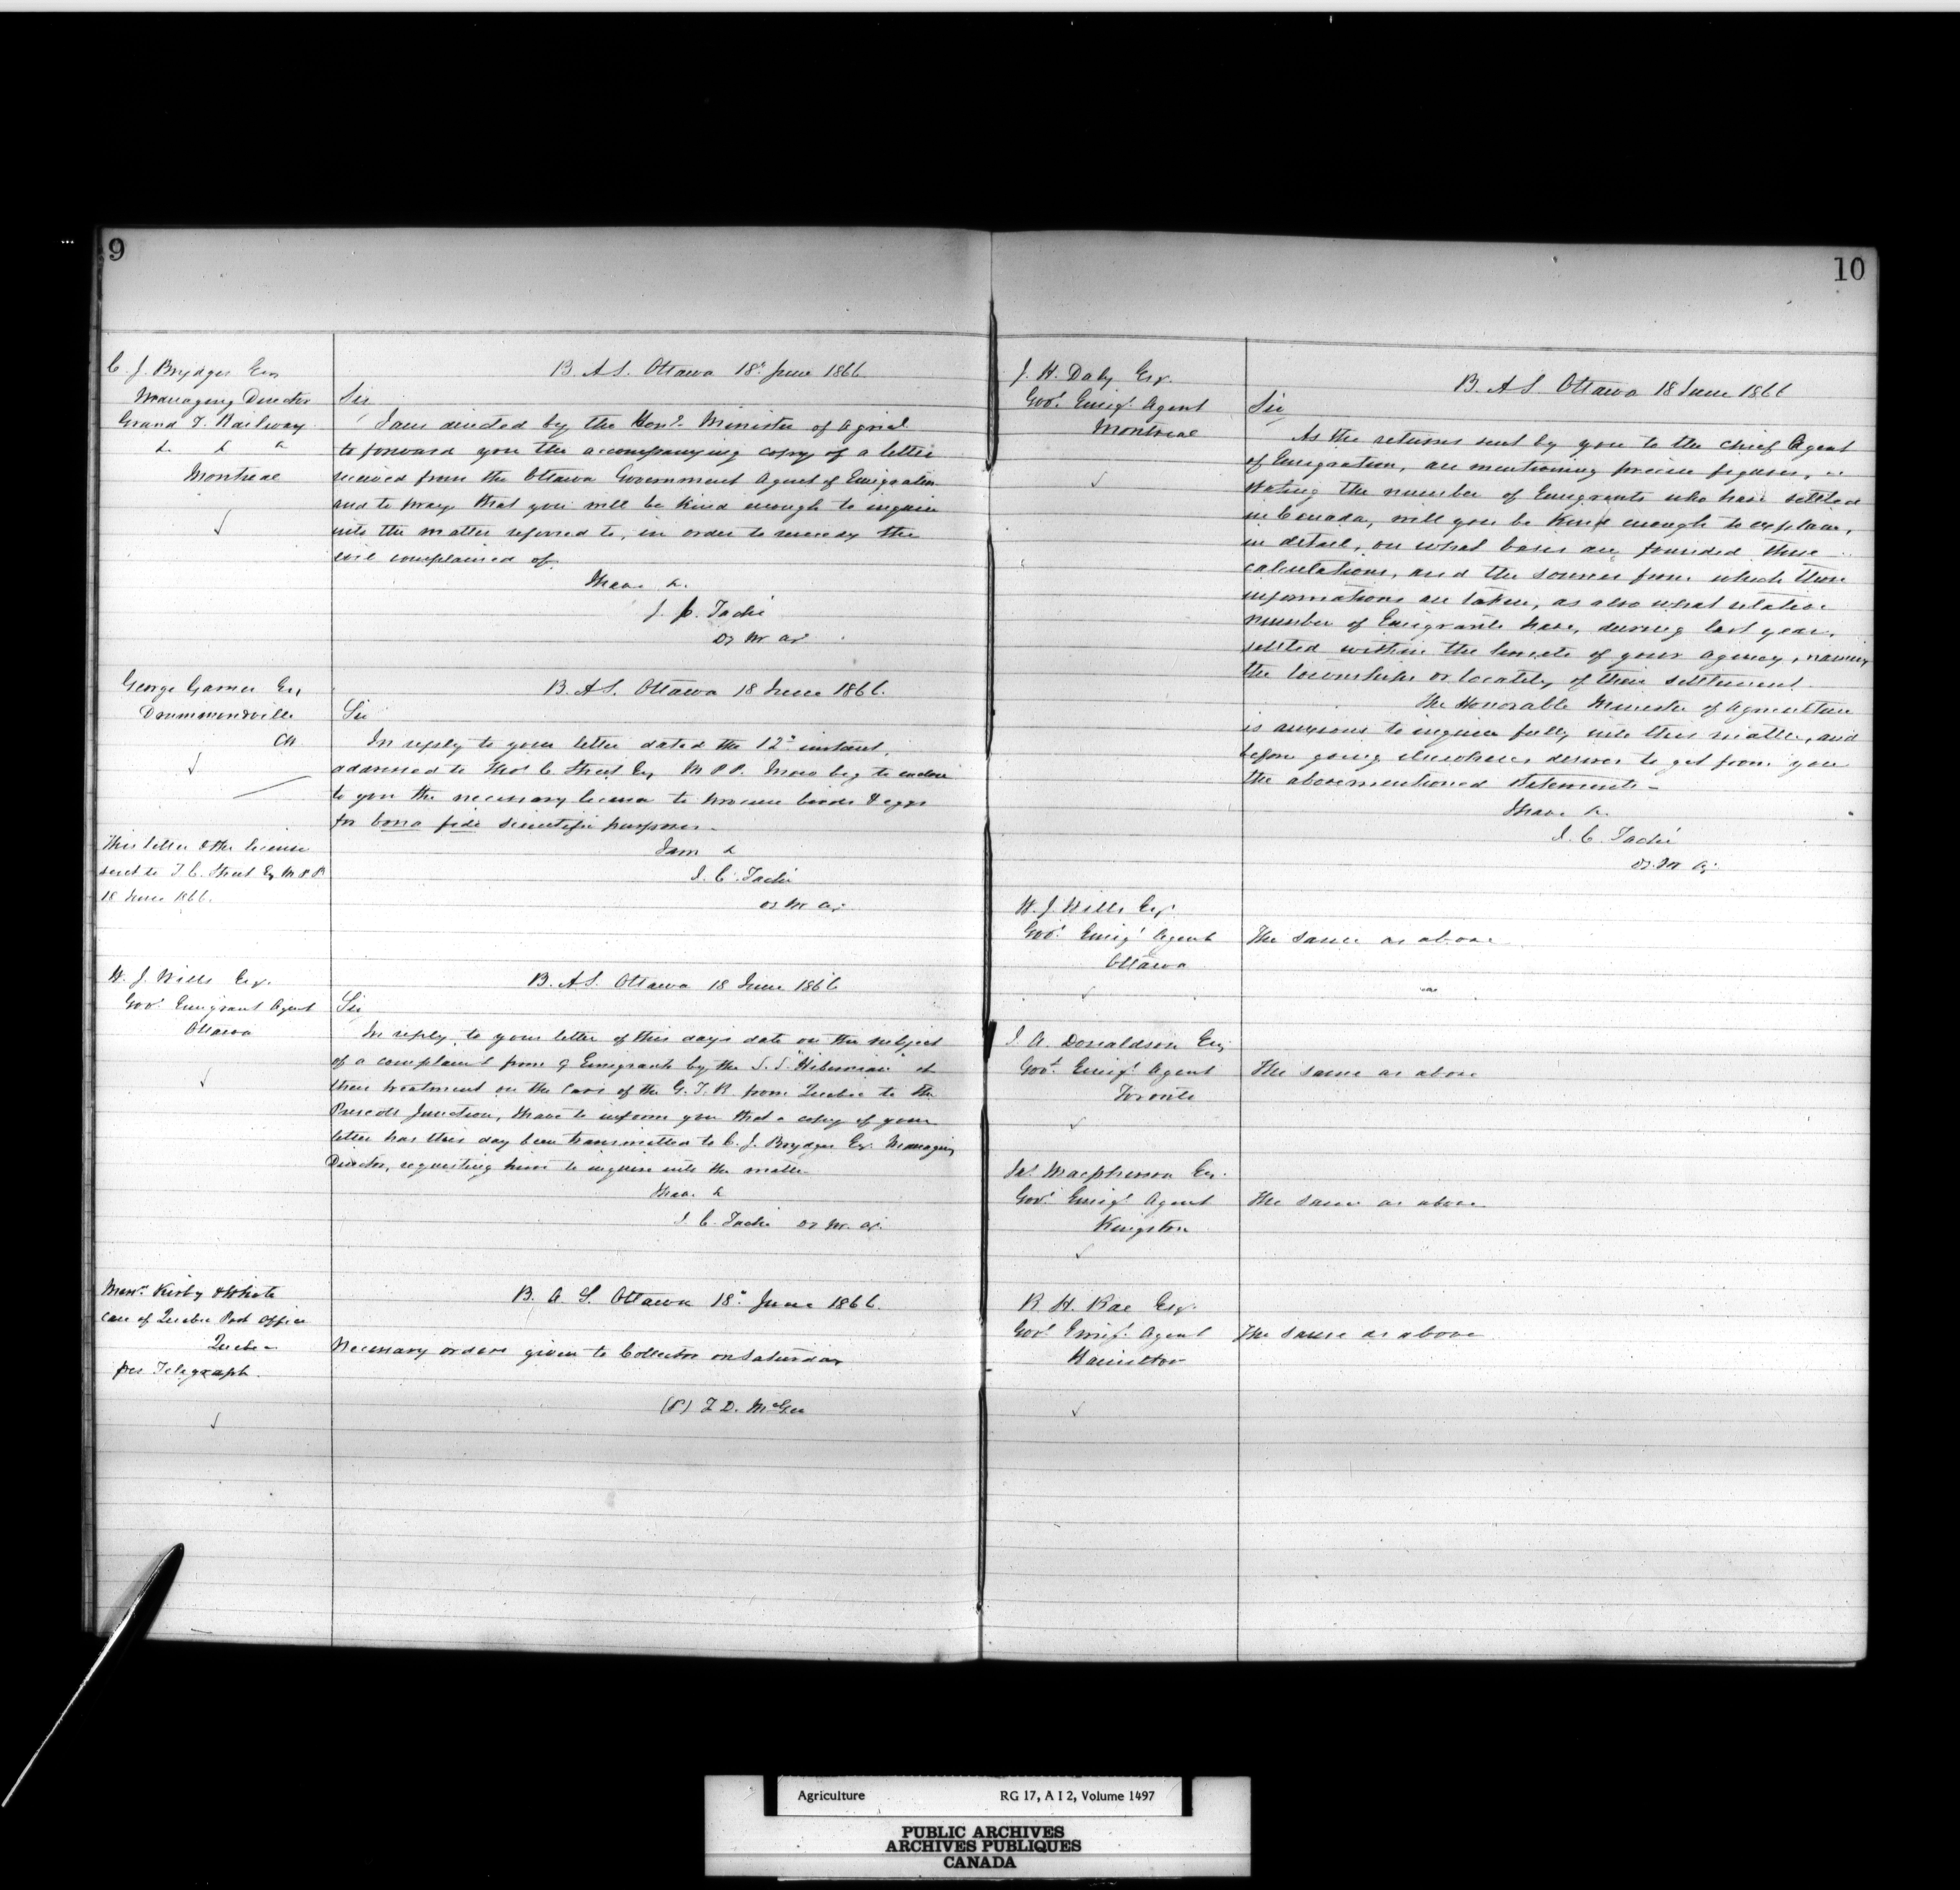 9
C. J. Brydges Esq
Managing Director
Grand T. Railway
&. & &
Montreal
B. A S. Ottawa 18th June 1866
Sir
I am directed by the Honle. Minister of Agricl
to forward you the accompanying copy of a letter
received from the Ottawa Government Agent of Emigration
and to pray that you will be kind enough to inquire
into the matter referred to, in order to remedy the
evil complained of.
I have &.
J. C. Taché
D. M. Ag.
George Garner Esq
Drummondville
CW
This letter & the license
sent to T. C. Street Esq M P P
18 June 1866.
B. A S. Ottawa 18 June 1866.
Sir
In reply to your letter dated the 12th instant,
addressed to Thos. C Street Esq M P P. I now beg to enclose
to you the necessary license to procure birds & eggs
for bona fide scientific purposes.
I am &
J. C. Taché
D. M. Ag.
W. J. Wills Esq.
Govt. Emigrant Agent
Ottawa
B. A S. Ottawa 18 June 1866
Sir
In reply to your letter of this day's date on the subject
of a complaint from 9 Emigrants by the S. S. "Hibernian" at
their treatment on the Cars of the G. T. R. from Quebec to the
Prescott Junction, I have to inform you that a copy of your
letter has this day been transmitted to C. J. Brydges Esq. Managing
Director, requesting him to inquire into the matter
I have &
J. C. Taché D. M. Ag.
Messrs. Kirby & White
Care of Quebec Post Office
Quebec
per Telegraph.
B. A. S. Ottawa 18th June 1866.
Necessary orders given to Collector on Saturday
(S) T. D. McGee
10
J. H. Daly Esq.
Govt. Emigt. Agent
Montreal
B. A S Ottawa 18 June 1866
Sir
As the returns sent by you to the Chief Agent
of Emigration, are mentioning precise figures,
stating the number of Emigrants who have settled
in Canada, will you be kind enough to explain,
in detail, on what bases are founded those
calculations, and the sources from which these
informations are taken, as also what relative
number of Emigrants have, during last year,
settled within the limits of your Agency, naming
the townships or locality of their settlement.
The Honorable Minister of Agriculture
is anxious to inquire fully into this matter, and
before going elsewhere, desires to get from you
the abovementioned statements.
I have &.
J. C. Taché
D. M. Ag.
W. J. Wills Esq.
Govt. Emigt Agent
Ottawa
The same as above
J. A. Donaldson Esq
Govt. Emigt. Agent
Toronto
The same as above
Jas. Macpherson Esq.
Govt. Emigt. Agent
Kingston
The same as above
R. H. Rae Esq.
Govt. Emigt. Agent
Hamilton
The same as above
Agriculture RG 17, A I 2, Volume 1497
PUBLIC ARCHIVES
ARCHIVES PUBLIQUES
CANADA